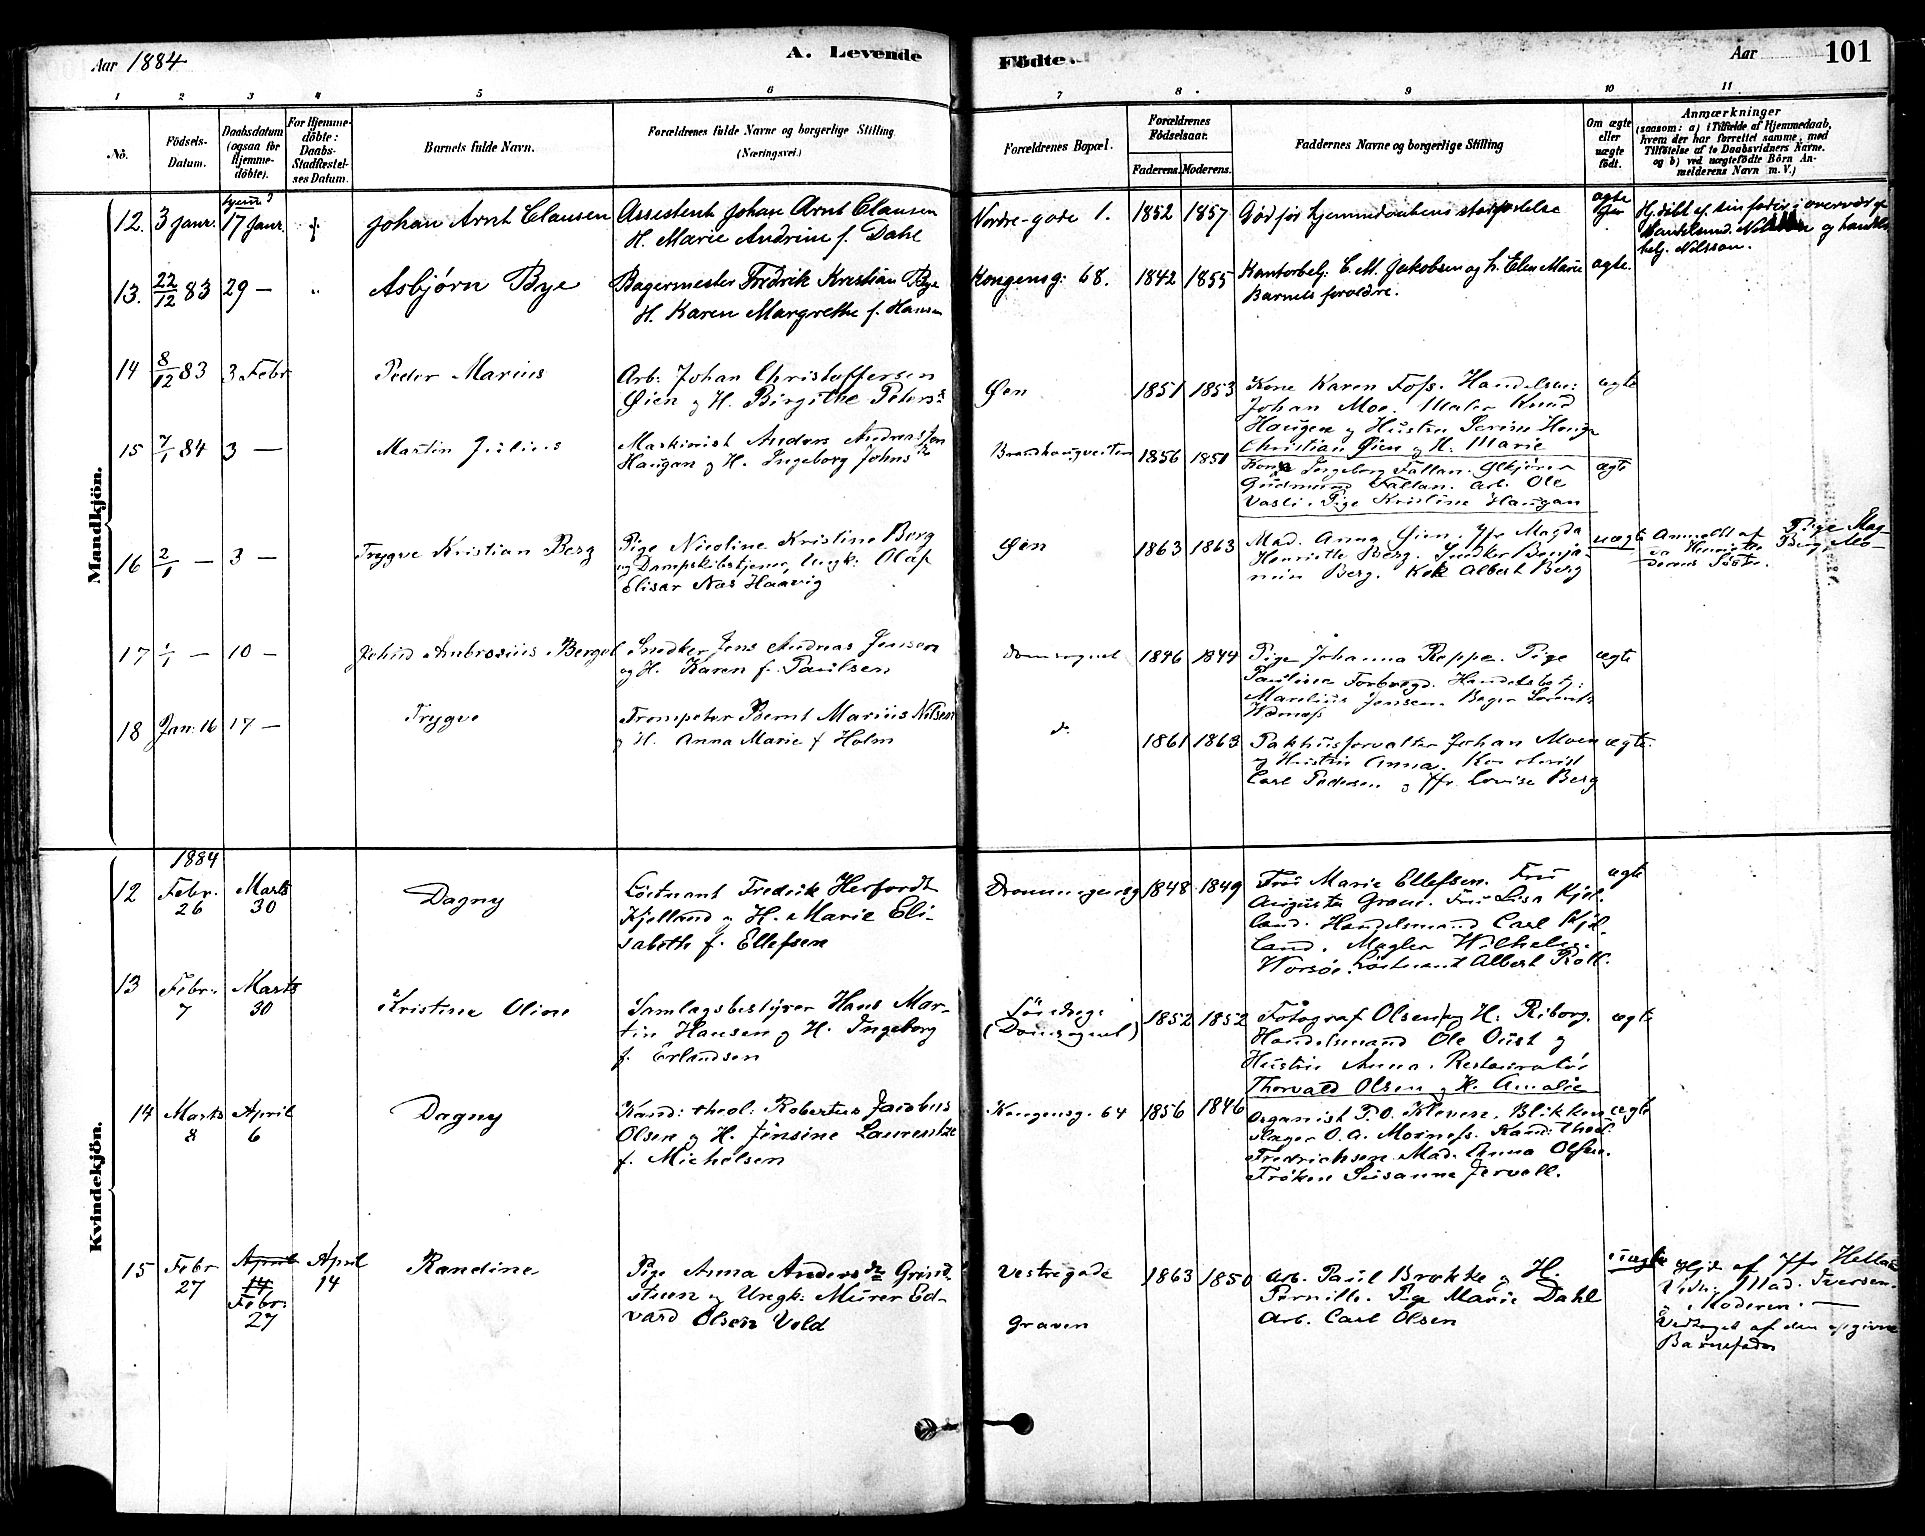 Aar 1884
A. Levende
Födte.
Aar
101
1 2 3 4 5 6 7 8 9 10 11
No.
Födsels-
Datum.
Daabsdatum
(ogsaa for
Hjemme-
döbte).
For Hjemme-
döbte:
Daabs-
Stadfæstel-
ses Datum.
Barnets fulde Navn.
Forældrenes fulde Navne og borgerlige Stilling
(Næringsvei.)
Forældrenes Bopæl.
Forældrenes
Födselsaar.
Faderens. Moderens.
Faddernes Navne og borgerlige Stilling
Om ægte
eller
uægte
født.
Anmærkninger
(saasom: a) i Tilfælde af Hjemmedaab,
hvem der har forrettet samme, med
Tilføielse af to Daabsvidners Navne.
og b) ved uægtefödte Börn An-
melderens Navn m. V.)
Mandkjön.
12. 3 Janr. 17 Janr.
Johan Arnt Clausen
Assistent Johan Arnt Clausen
H. Marie Andrine f. Dahl
Nordre-gade 1.
1852 1857
ægte
13. 22/12 83 29 —
Asbjørn Bye
Bagermester Fredrik Kristian Bye
H. Karen Margrethe f. Hansen
Kongensg. 68.
1842 1855
Kontorbetj. C. M. Jakobsen og h. Elen Marie
Barnets forældre.
ægte.
14 8/12 83 3 Febr
Peder Marius
Arb: Johan Christoffersen
Øien og H. Birgithe Peters
Øen
1851 1853
Kone Karen Foss. Handelsm:
Johan Moe. Maler Knud
Haugen og Hustru Serine Haugen
Christian Øien og H. Marie
ægte
15 7/1 84 3 —
Martin Julius
Maskinist Anders Andreassen
Haugan og H. Ingeborg Johns
Brandhaugveiten
1856 1851
Kone Ingeborg Fallan.
Gudmund Fallan. Arb. Ole
Vasli. Pige Kristine Haugan
ægte
16 2/1 — 3 —
Trygve Kristian Berg
Pige Nicoline Kristine Berg
og Dampskibstjener, Ungk: Olaf
Elisar Næs Haavig
Øen
1863 1863
Mad. Anna Øien. Jfr Magda
Henriette Berg. Snedker Benja-
min Berg. Kok Albert Berg
uægte
Anmeldt af Pige Mag
da Henriette Berg, Mo-
derens Søster.
17 1/1 — 10 —
Snedker Jens Andreas Jensen
og H. Karen f. Paulsen
Domsognet
1846 1844
Pige Johanna Reppe. Pige
Pauline Forbregd. Handelsbetj:
Marelius Jensen. Bager Lorents
ægte
18 Jan: 16 17 —
Trygve
Trompeter Bernt Marius Nilsen
og H. Anna Marie f Holm
do
1861 1863
Pakhusforvalter Johan Moen
og Hustru Anna.
Carl Pedersen og Jfr. Lovise Berg
ægte.
Kvindekjön.
1884
12 Febr. 26 Marts 30
Dagny
Løitnant Fredrik Herfordt
Kjelland og H. Marie Eli-
sabeth f. Ellefsen
Dronningensg
1848 1849
Fru Marie Ellefsen. Fru
Augusta Grøne. Fru Lisa Kjel-
land. Handelsmand Carl Kjel-
land. Mægler Wilhelm
Worsøe. Løitnant Albert Roll.
ægte
13 Febr. 7 Marts 30
Kristine Oline
Samlagsbestyrer Hans Mar-
tin Hansen og H. Ingeborg
f. Erlandsen
(Domsognet)
1852 1852
Fotograf Olsen og H. Riborg.
Handelsmand Ole Oust og
Hustru Anna. Restauratør
Thorvald Olsen og H. Amalie
ægte
14 Marts 8 April 6
Dagny
Kand: theol: Robertus Jacobus
Olsen og H. Jensine Laurentze
f. Michelsen
Kongensg. 64
1856 1846
Organist P. O. Klevene. Blikken-
slager O. A. Mosness. Kand: theol:
Fredrichsen. Mad. Anna Olsen.
Frøken Susanna Jervell.
ægte
15 Febr 27 April 14 Febr. 27 April 14
Randine
Pige Anna Andersdr Grind
stuen og Ungk: Murer Ed-
vard Olsen Vold
Vestregade
Graven
1863 1850
Arb. Paul Brække og H.
Pernille. Pige Marie Dahl
Arb. Carl Olsen
uægte
Hjd. af Jfr
Mad. Iversen
og Moderen. —
Vedtaget af den opgivne
Barnefader